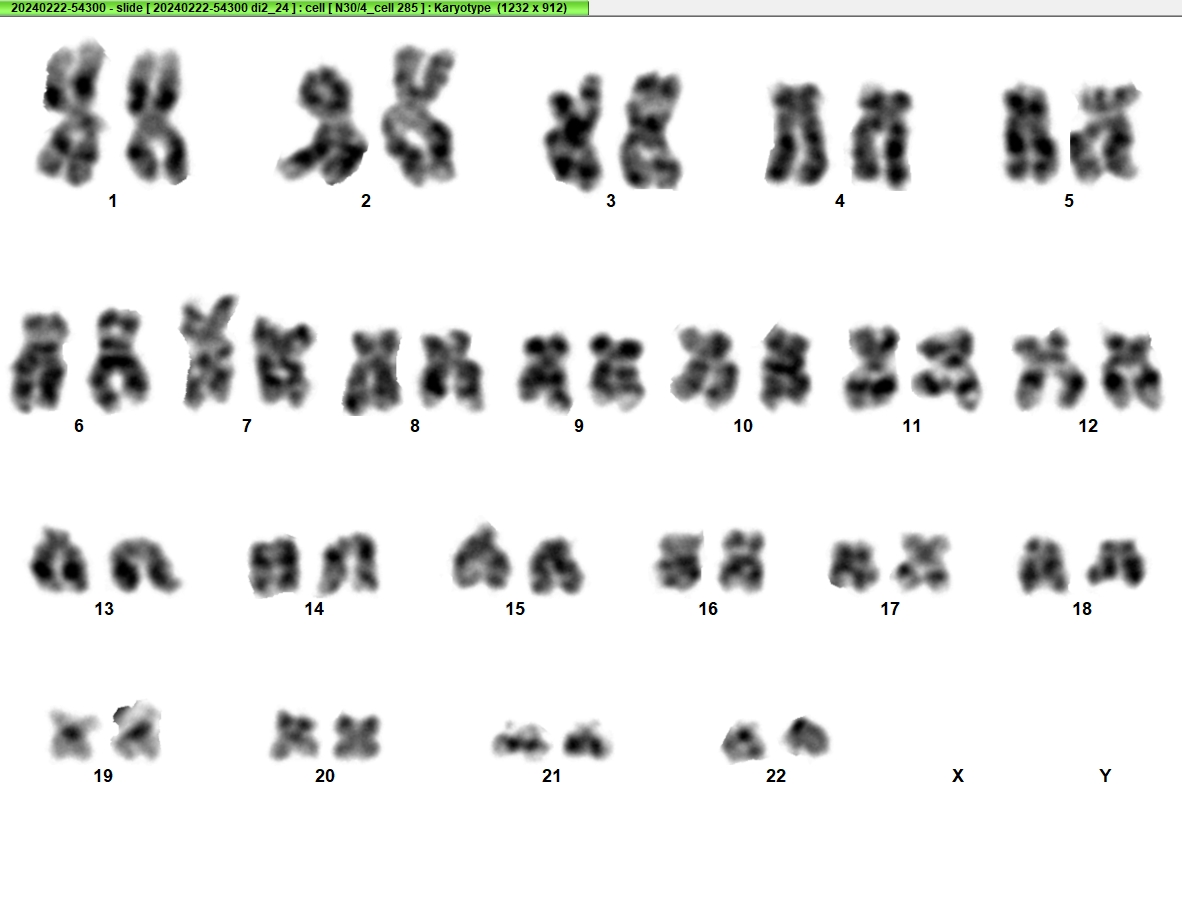 20240222-54300 - slide [ 20240222-54300 di2_24 ] : cell [ N30/4_cell 285 ] : Karyotype (1232 x 912)
1 2 3 4 5
6 7 8 9 10 11 12
13 14 15 16 17 18
19 20 21 22 X Y